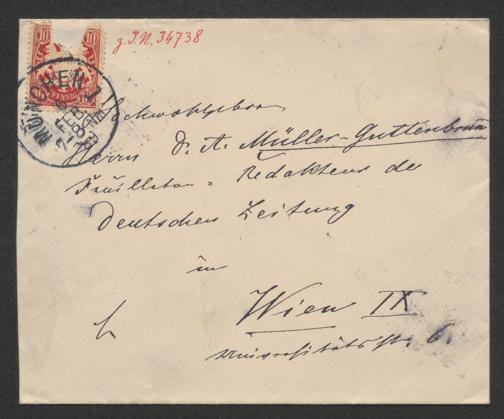 z I.N. 34738
10 10
PFENNIG
MÜNCHEN 1
7 FEB
Hochwohlgeboren
Herrn Dr. A. Müller-Guttenbrunn
Feuilleton-Redakteur der
Deutschen Zeitung
in
Wien IX
Universitätsstr. 6.